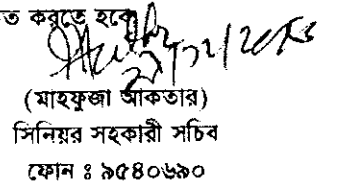 ত করতে হবে
(মাহফুজা আকতার)
সিনিয়র সহকারী সচিব
ফোন ঃ ৯৫৪০৬৯০